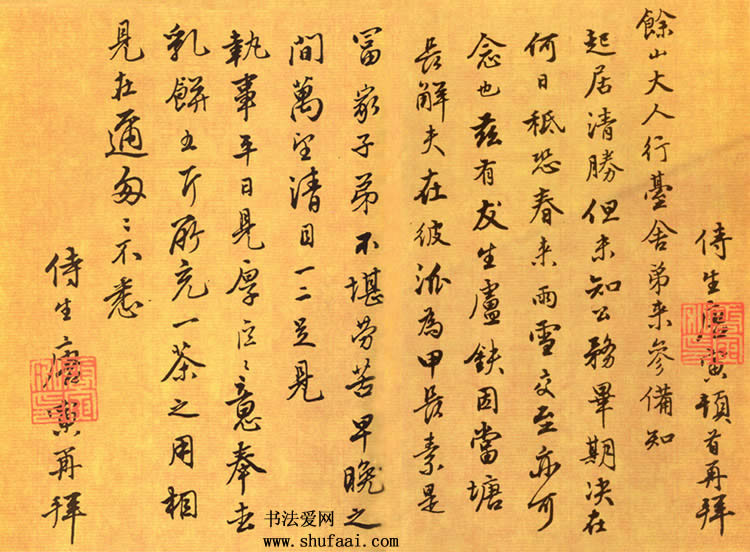 侍生唐寅頓首再拜
餘山大人行臺舍弟来參備知
起居清勝但未知公務畢期決在
何日秪恐春来雨雪交至亦可
念也茲有友生盧鈇因當塘
長解夫在彼泒為甲長素是
冨家子弟不堪勞苦早晚之
間萬望清目一二足見
執事平日見厚區〻意奉去
乳餅五斤所充一茶之用相
見在邇匆〻不悉
侍生唐寅再拜
书法爱网
www.shufaai.com